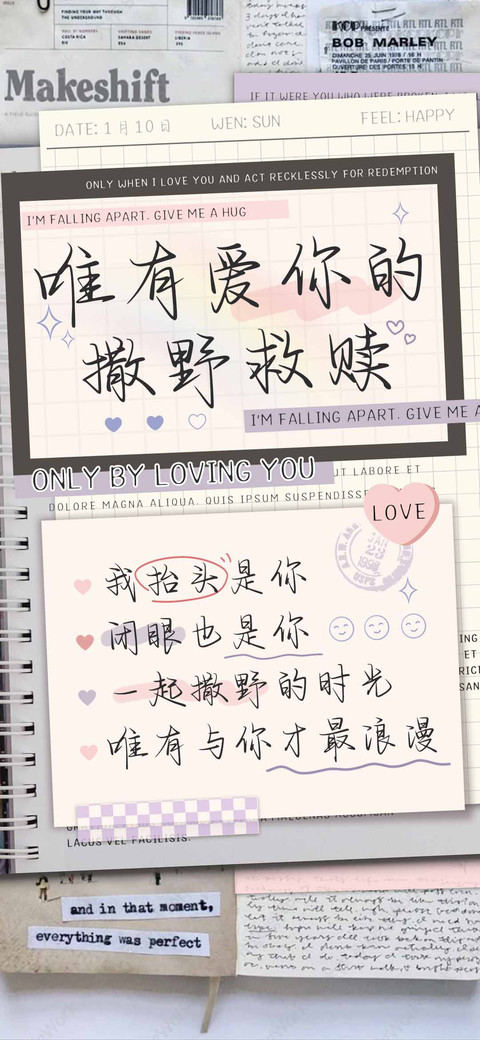 FINDING YOUR WAY THROUGH
THE UNDERGROUND
COSTA RICA
SAHARA DESERT
LIBERIA
Makeshift
BOB MARLEY
DIMANCHE 26 JUIN 1978 / 16 H
PAVILLON DE PARIS / PORTE DE PANTIN
OUVERTURE DES PORTES 15 H
IF IT WERE YOU WHO WERE BROKEN
DATE: 1月10日 WEN: SUN FEEL: HAPPY
ONLY WHEN I LOVE YOU AND ACT RECKLESSLY FOR REDEMPTION
I'M FALLING APART. GIVE ME A HUG
唯有爱你的
撒野救赎
I'M FALLING APART. GIVE ME A
ONLY BY LOVING YOU
UT LABORE ET
DOLORE MAGNA ALIQUA. QUIS IPSUM SUSPENDISSE
LOVE
我抬头是你
闭眼也是你
一起撒野的时光
唯有与你才最浪漫
LACUS VEL FACILISIS.
and in that moment,
everything was perfect